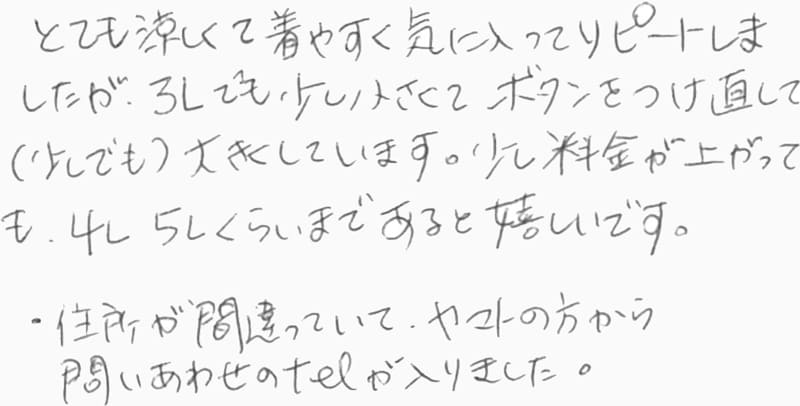 とても涼しくて着やすく気に入ってリピートしま
したが、3Lでも少し小さくて ボタンをつけ直して
(少しでも)大きくしています。少し料金が上がって
も、4L 5Lくらいまであると嬉しいです。
・住所が間違っていて、ヤマトの方から
問いあわせのtelが入りました。